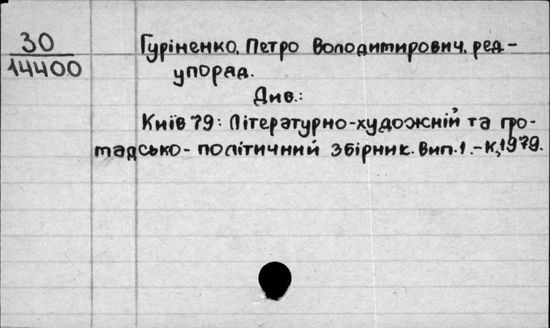 30
14400
Гуріненко, Петро Володимирович, ред-
упоряд.
Див.:
Київ 79: Літературно-художній та гро-
мадсько-політичний збірник. Вип.1.-К,1979.